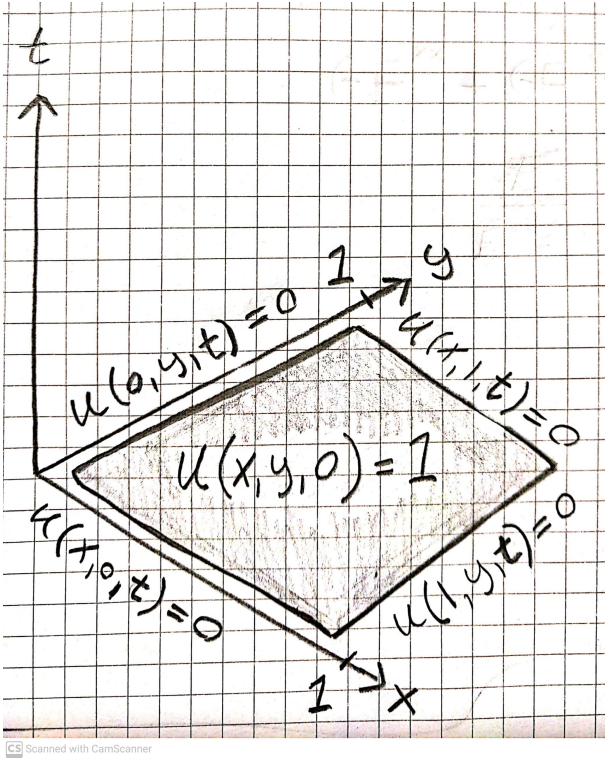 t
1
y
u(0,y,t)=0
u(x,1,t)=0
u(x,y,0)=1
u(x,0,t)=0
u(1,y,t)=0
1
x
CS Scanned with CamScanner